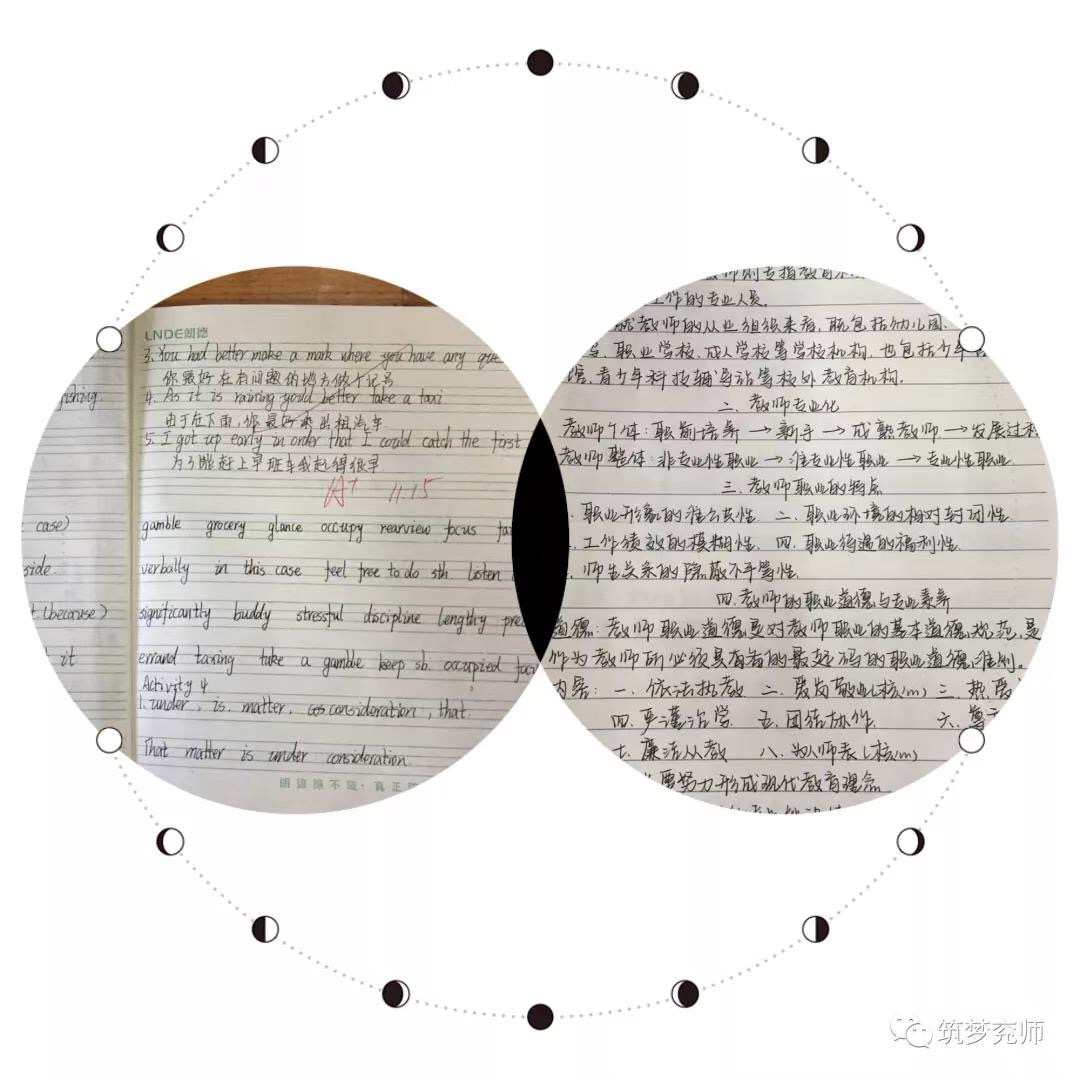 LNDE朗德
3. You had better make a mark where you have any que
你最好在有问题的地方做个记号.
4. As it is raining you'd better take a taxi
由于在下雨,你最好乘出租汽车.
5. I got up early in order that I could catch the first
为了能赶上早班车我起得很早.
A+ 11.15
fishing.
case)
side.
(because)
it
gamble grocery glance occupy rearview focus
verbally in this case feel free to do sth. listen
significantly buddy stressful discipline lengthy
errand taxing take a gamble keep sb. occupied
Activity 4
1. under, is. matter. consideration, that.
That matter is under consideration.
工作的专业人员.
就教师的从业组织来看,既包括幼儿园、
职业学校、成人学校等学校机构,也包括少年
青少年科技辅导站等校外教育机构.
二、教师专业化
教师个体:职前培养→新手→成熟教师→发展过程
教师整体:非专业性职业→准专业性职业→专业性职业
三、教师职业的特点
职业形象的准公共性 二、职业环境的相对封闭性.
工作绩效的模糊性. 四、职业待遇的福利性.
师生关系的隐蔽不平等性.
四、教师的职业道德与专业素养
道德:教师职业道德是对教师职业的基本道德规范,是
作为教师所必须具有着的最起码的职业道德准则。
内容:一、依法执教 二、爱岗敬业(核心) 三、热爱
四、严谨治学 五、团结协作 六、尊
七、廉洁从教 八、为人师表(核心)
要努力形成现代教育理念
筑梦兖师